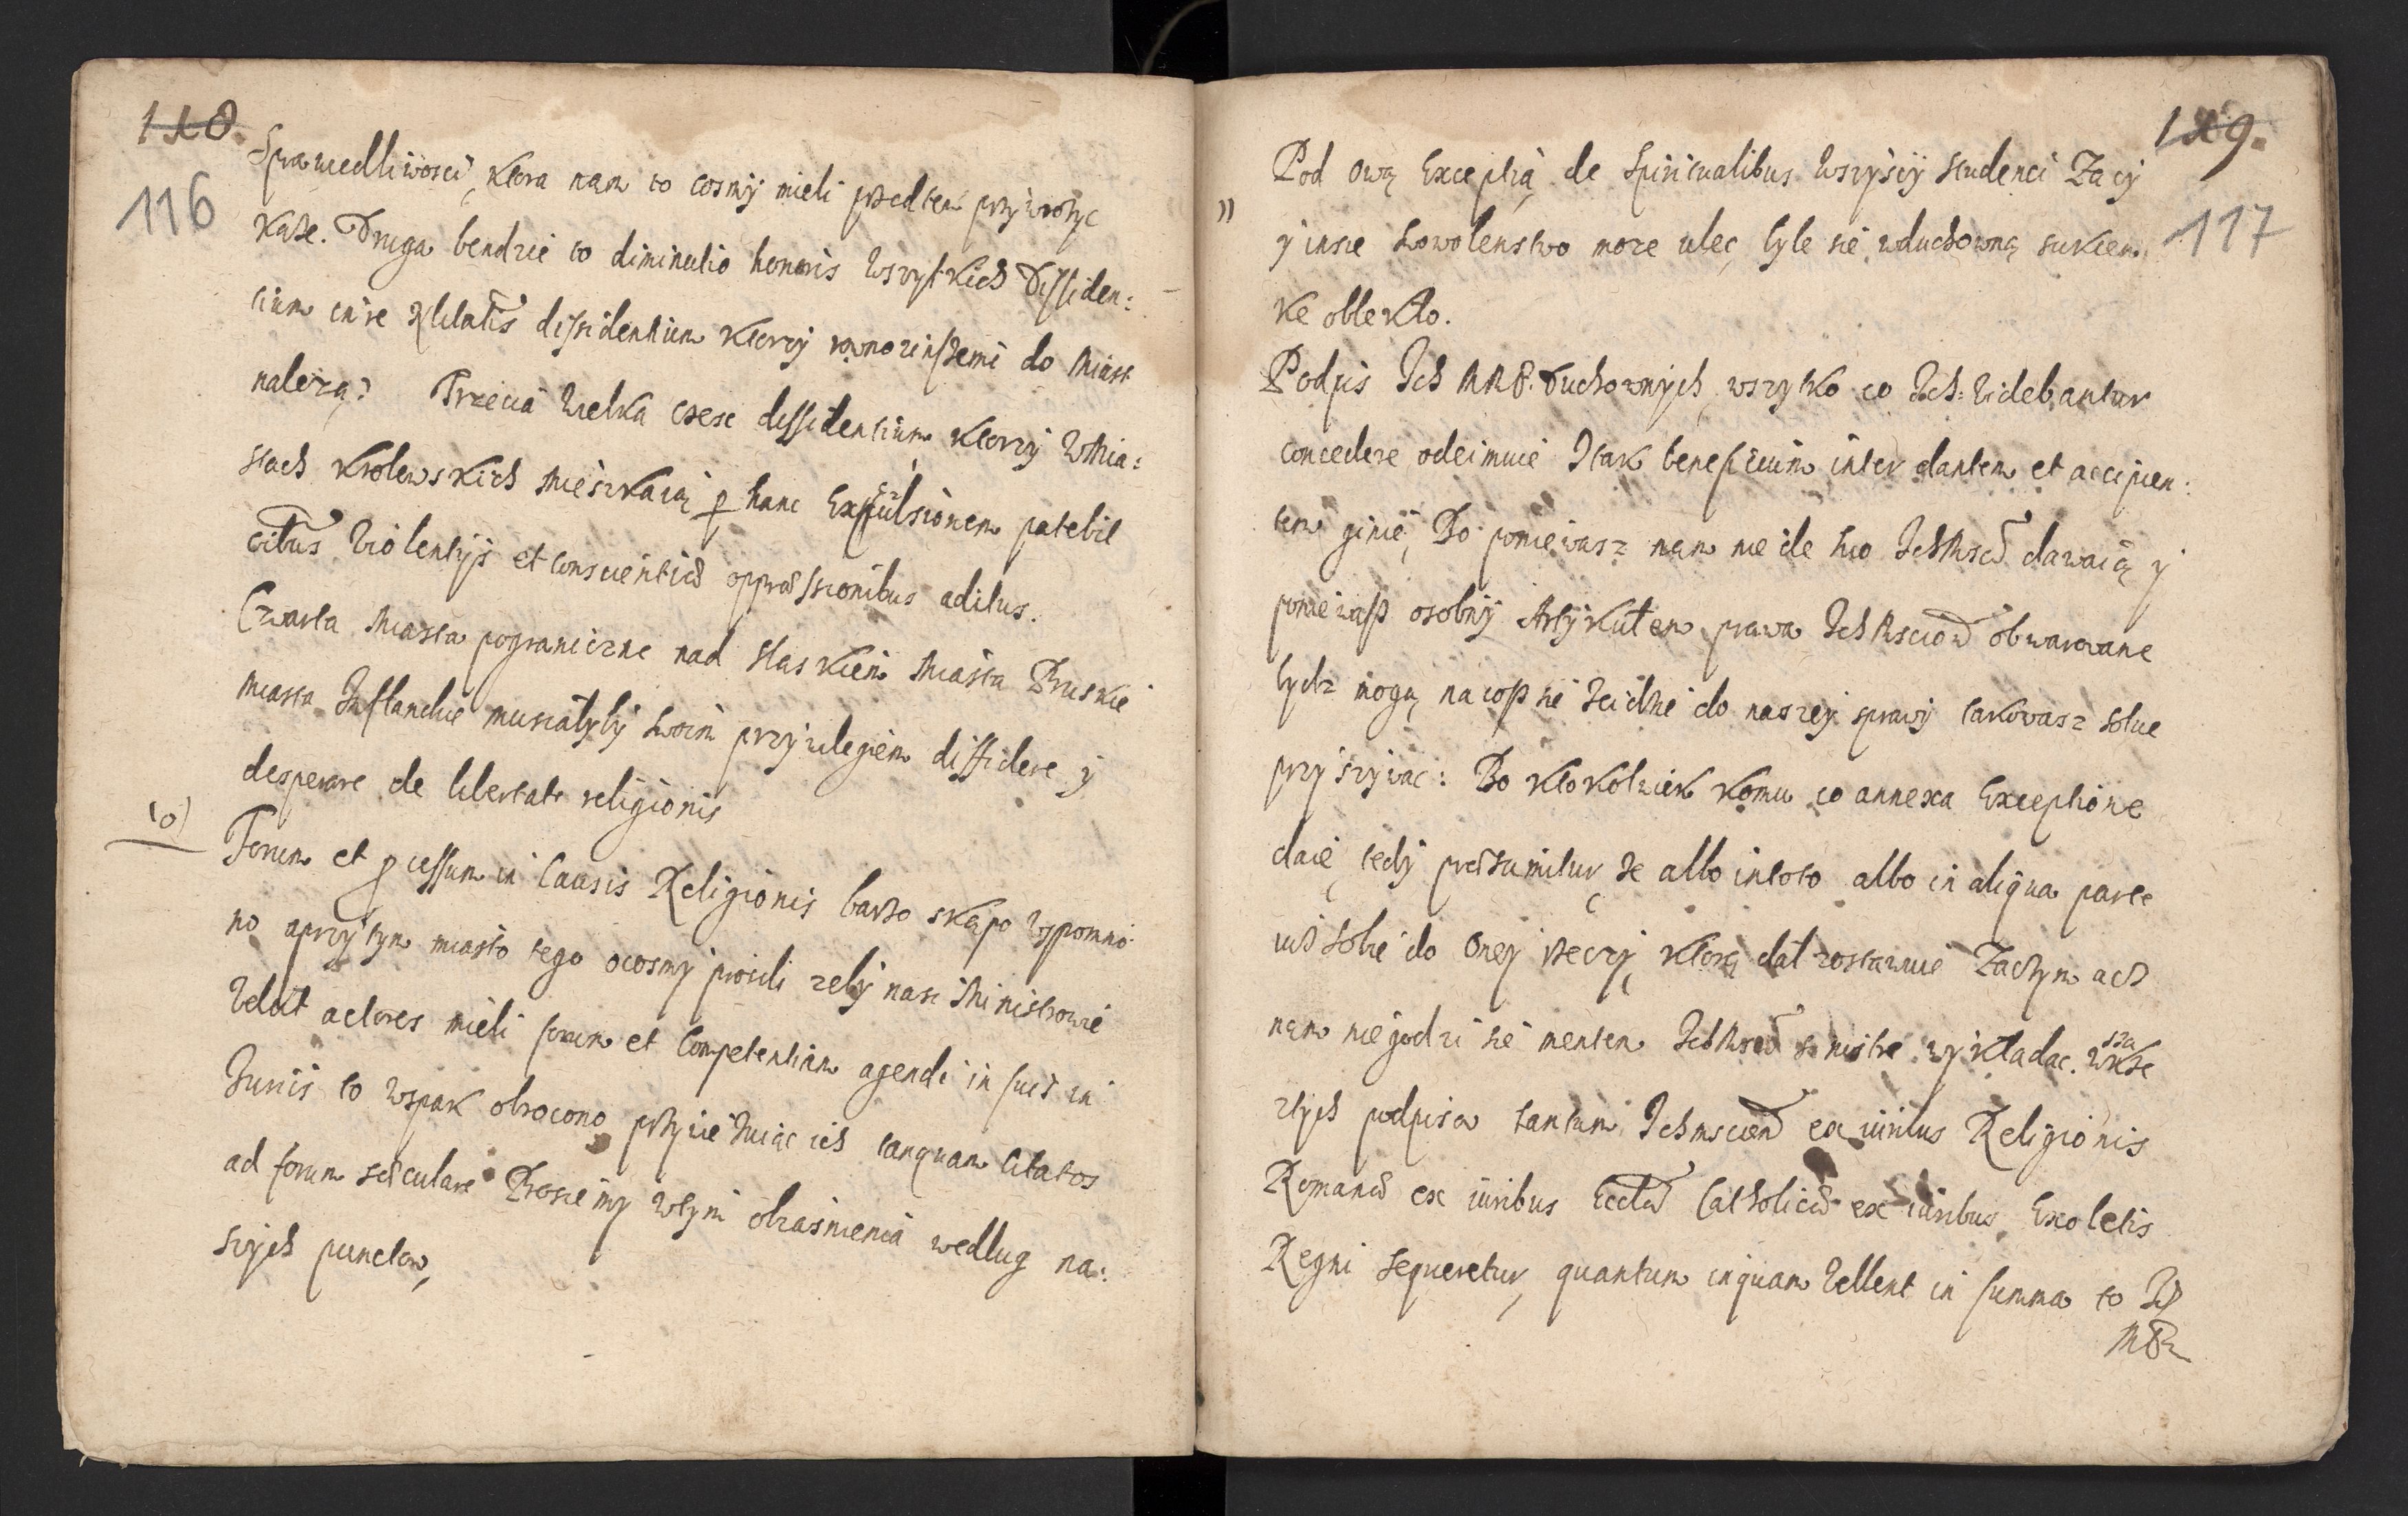 118.
116
Sprawiedliwosci, ktora nam to cosmÿ mieli przedtem przÿwroćyc
Kaze. Druga bendzie to diminutio honoris wszystkich Dissiden:
tium in re dissidentium Ktorzÿ rowno zinszemi do Miast
należą? Trzecia wielka czesc dissidentium Ktorzÿ w Mia:
stach Krolewskich Mieszkaią p hanc Expulsionem patebit
violentijs et conscientiæ oppræssionibus aditus.
Czwarta Miasta pograniczne nad Slaskiem Miasta Pruskie
miasta Inflandzie musiałÿbÿ swoim przÿwilegiem diffidere ÿ
desperare de libertate religionis
10)
Forum et p cessum in Causis Religionis barzo skąpo wspomnio
no aprzÿtym miasto tego ocosmÿ prosili zebÿ nasi Ministrowie
Velut actores mieli forum et Competentiam agendi in suis in
Iuriis to wspak obrocono tanquam Citatos
ad forum sæculare Prosiemÿ wtÿm obiasnienia wedlug na:
szÿch punctow,
119.
117
Pod ową Exceptią de Spiritualibus wszÿscÿ studenci Zacÿ
"
ÿ insze swowolenstwo moze ulec bÿle sie wduchowną sukien
ke oblekło.
Podpis Ich MM P. Duchownÿch, wszÿtko co Ich: Videbantur
concedere odeimuie Itak beneficium inter dantem et accipien:
tem ginie, Bo poniewasz nam nie de suo IchMsc dawaią ÿ
poniewasz osobnÿ Artÿkułem prawa IchMsciow obwarowane
bÿdz mogą na cosz sie do naszeÿ sprawÿ takowasz
przÿszÿwac: Bo Ktokolwiek Komu co annexa Exceptione
daie tedÿ præsumitur ze albo intoto albo in aliqua parte
ius sobie do oneÿ rzeczÿ, Ktorą dał zostawuie Zaczÿm acz
nam niegodzi sie mentem IchMsc sinistre wÿkładac.
podpisu tantum Ichmsciow ex iuribus Religionis
Romanæ ex iuribus Ecclæ Catholicæ ex iuribus Exoletis
Regni sequeretur, quantum inquam Vellent in summa to Ich